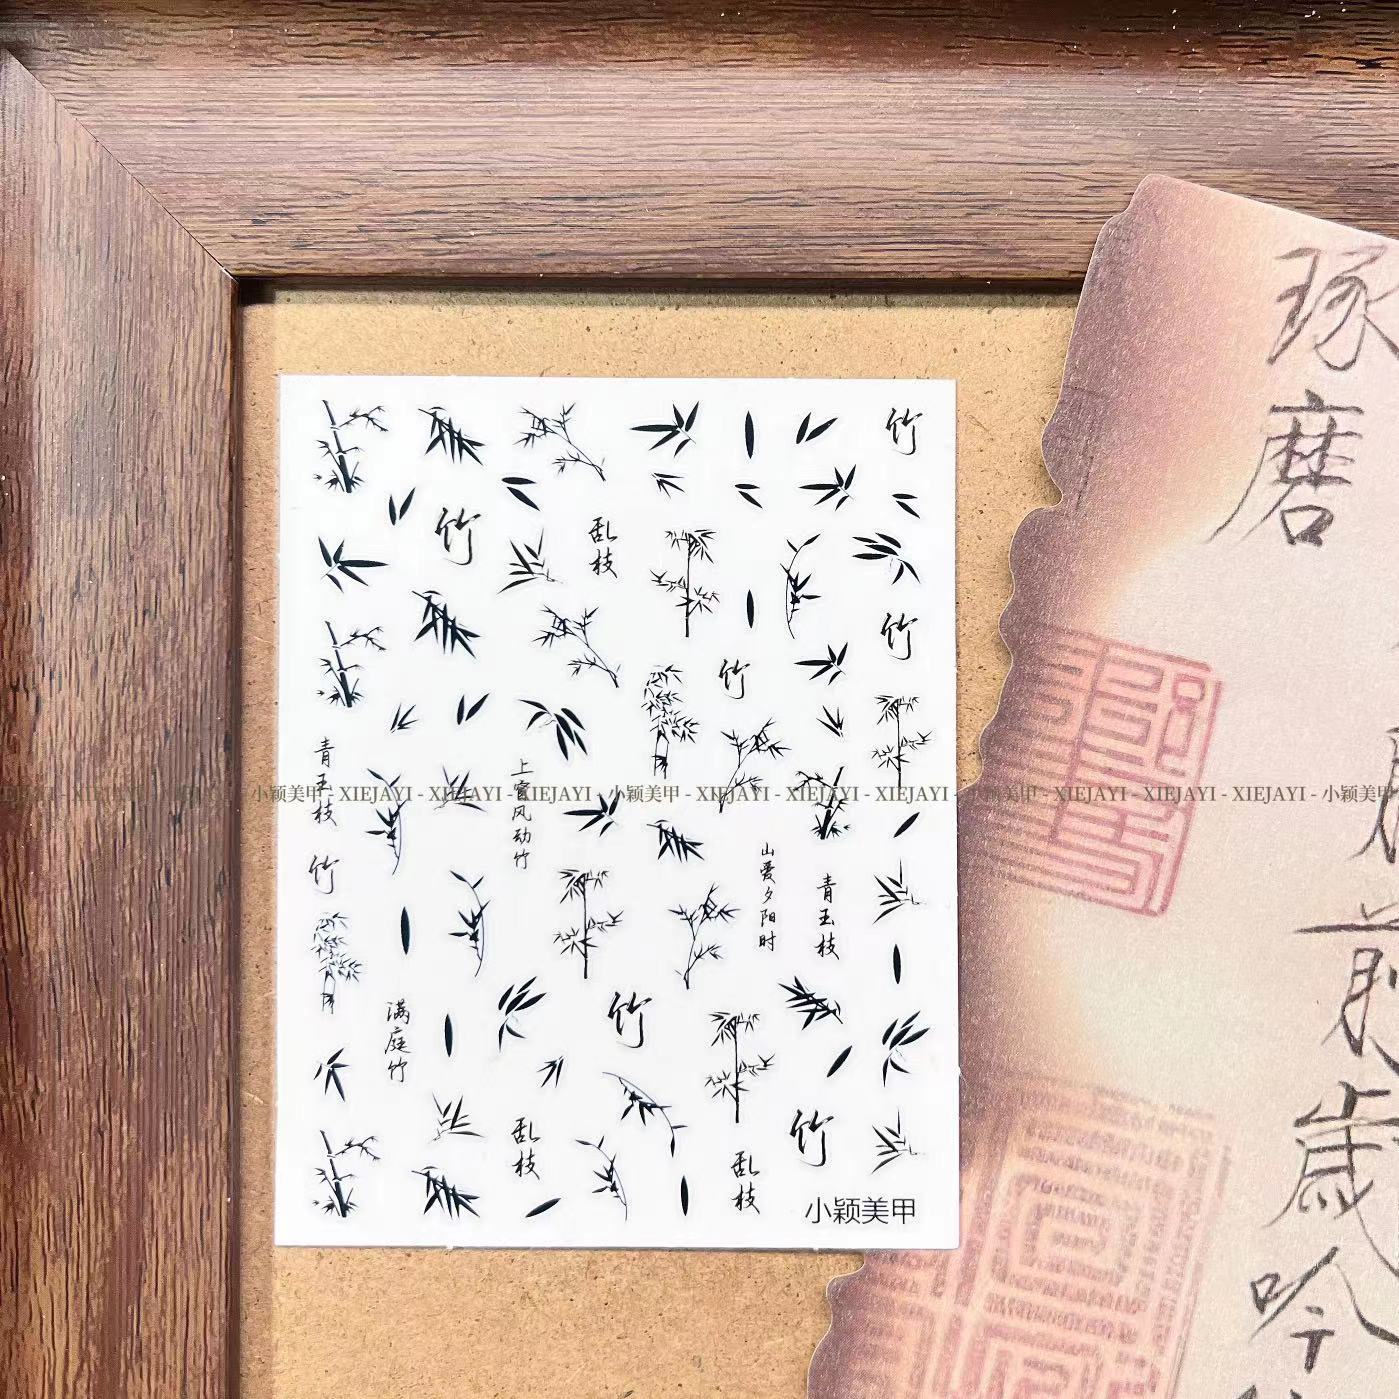 竹
竹
乱枝
竹
竹
青玉枝
上宫风动竹
竹
山爱夕阳时
青玉枝
满庭竹
竹
乱枝
竹
乱枝
小颖美甲
小颖美甲 - XIEJAYI - XIEJAYI - XIEJAYI - 小颖美甲 - XIEJAYI - XIEJAYI - XIEJAYI - 小颖美甲 - XIEJAYI - XIEJAYI - 小颖美甲
琢磨
前歲吟